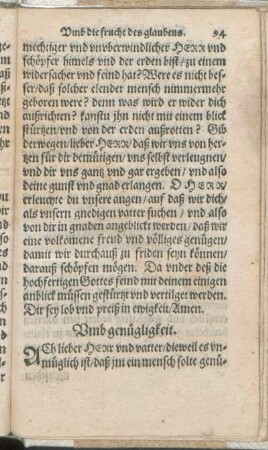 Vmb die frucht des glaubens. 94
mechtiger vnd vnvberwindlicher HERR vnd
schöpfer himels vnd der erden bist/zu einem
widersacher vnd feind hat? Were es nicht bes-
ser/daß solcher elender mensch nimmermehr
geboren were? denn was wird er wider dich
außrichten? kanstu jhn nicht mit einem blick
stürtzen/vnd von der erden außrotten? Gib
derwegen/lieber HERR/daß wir vns von her-
tzen für dir demütigen/vns selbst verleugnen/
vnd dir vns gantz vnd gar ergeben/vnd also
deine gunst vnd gnad erlangen. O HERR/
erleuchte du vnsere augen/auf daß wir dich/
als vnsern gnedigen vatter suchen/vnd also
von dir in gnaden angeblickt werden/daß wir
eine volkomene freud vnd völliges genügen/
damit wir durchauß zu friden seyn können/
darauß schöpfen mögen. Da vnder deß die
hochfertigen Gottes feind mit deinem einigen
anblick müssen gestürtzt vnd vertilget werden.
Dir sey lob vnd preiß in ewigkeit/Amen.
Vmb genügligkeit.
ACh lieber HERR vnd vatter/dieweil es vn-
müglich ist/daß jm ein mensch solte genü-